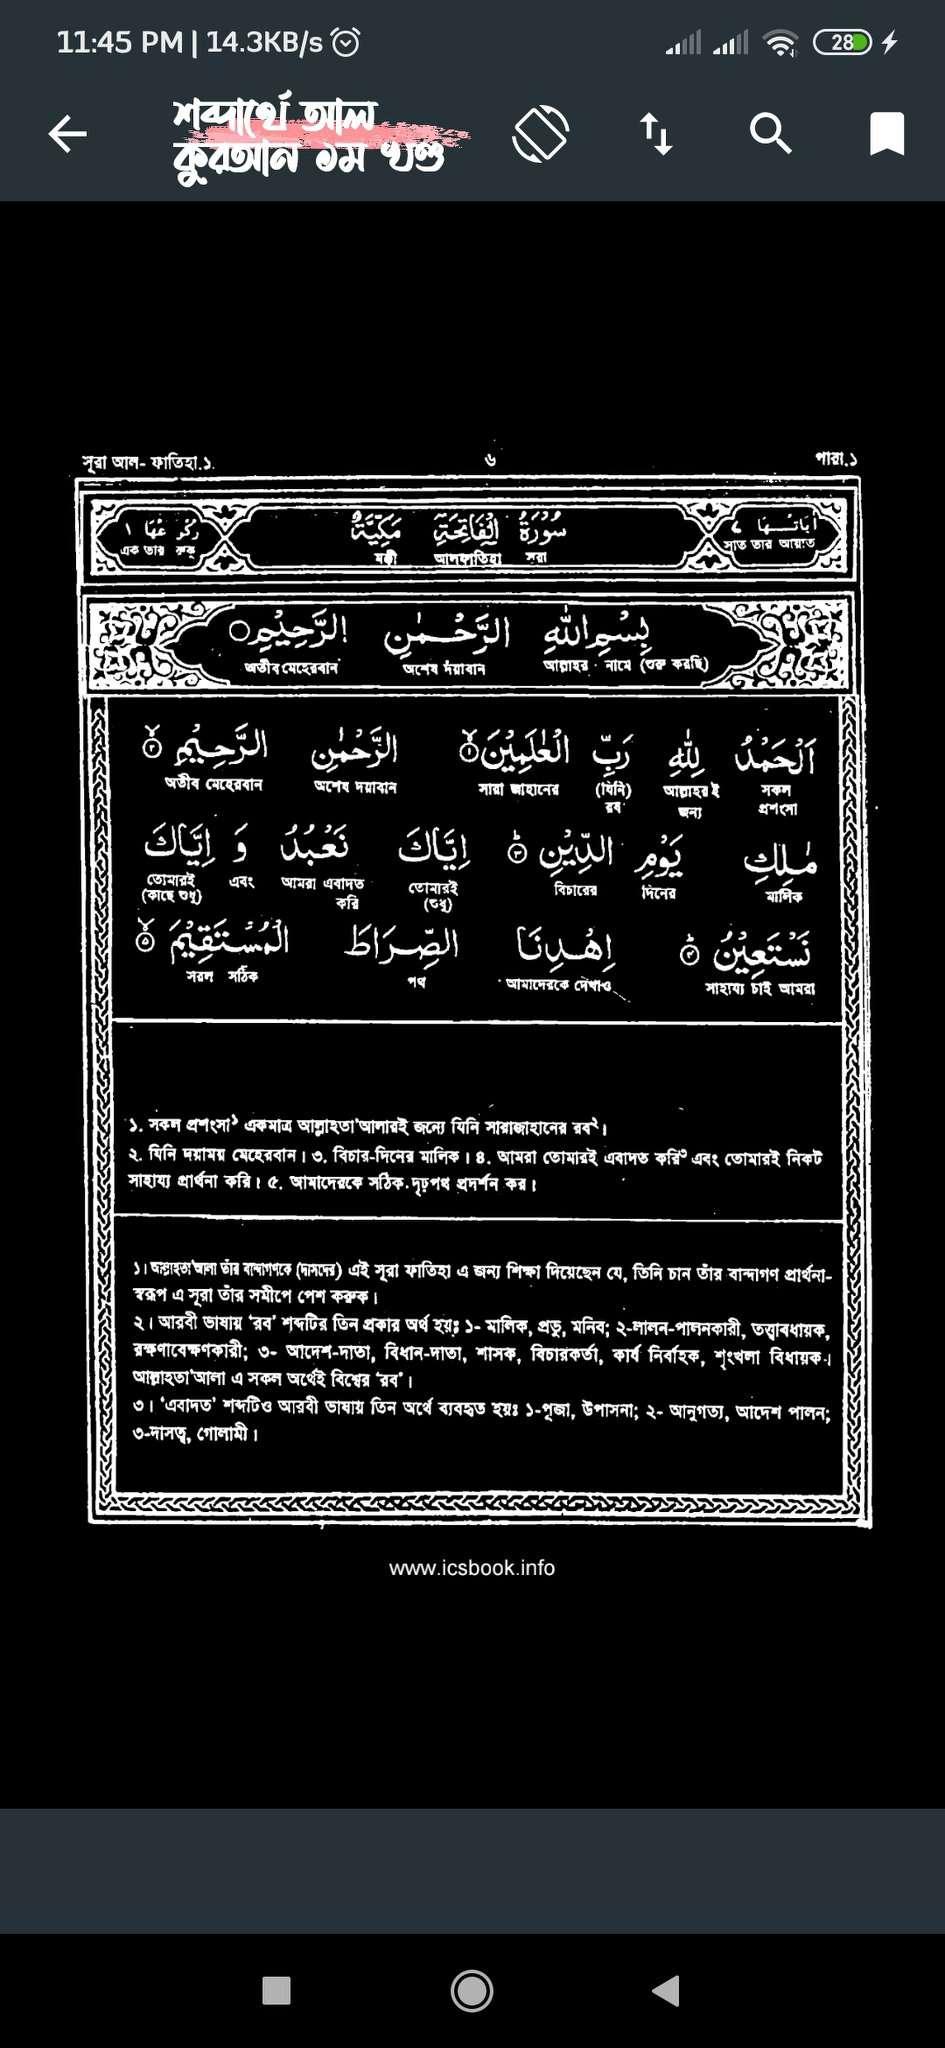 11:45 PM | 14.3KB/s
28
শব্দার্থে আল
কুরআন ১ম খণ্ড
সূরা আল- ফাতিহা.১ ৬ পারা.১
اٰيَاتُهَا ٧ سُوْرَةُ الْفَاتِحَةِ مَكِّيَّةٌ رُكُوْعُهَا ١
সাত তার আয়াত সূরা আলফাতিহা মক্কী এক তার রুকু
بِسْمِ اللّٰهِ الرَّحْمٰنِ الرَّحِيْمِ
আল্লাহর নামে (শুরু করছি) অশেষ দয়াবান অতীব মেহেরবান
اَلْحَمْدُ لِلّٰهِ رَبِّ الْعٰلَمِيْنَ ① الرَّحْمٰنِ الرَّحِيْمِ ②
সকল আল্লাহরই (যিনি) সারা জাহানের অশেষ দয়াবান অতীব মেহেরবান
প্রশংসা জন্য রব
مٰلِكِ يَوْمِ الدِّيْنِ ③ اِيَّاكَ نَعْبُدُ وَ اِيَّاكَ
মালিক দিনের বিচারের তোমারই আমরা এবাদত এবং তোমারই
(শুধু) করি (কাছে শুধু)
نَسْتَعِيْنُ ④ اِهْدِنَا الصِّرَاطَ الْمُسْتَقِيْمَ ⑤
সাহায্য চাই আমরা আমাদেরকে দেখাও পথ সরল সঠিক
১. সকল প্রশংসা১ একমাত্র আল্লাহতা'আলারই জন্যে যিনি সারাজাহানের রব২।
২. যিনি দয়াময় মেহেরবান। ৩. বিচার-দিনের মালিক। ৪. আমরা তোমারই এবাদত করি৩ এবং তোমারই নিকট
সাহায্য প্রার্থনা করি। ৫. আমাদেরকে সঠিক দৃঢ়পথ প্রদর্শন কর।
১। আল্লাহতা'আলা তাঁর বান্দাগণকে (দাসদের) এই সূরা ফাতিহা এ জন্য শিক্ষা দিয়েছেন যে, তিনি চান তাঁর বান্দাগণ প্রার্থনা-
স্বরূপ এ সূরা তাঁর সমীপে পেশ করুক।
২। আরবী ভাষায় 'রব' শব্দটির তিন প্রকার অর্থ হয়ঃ ১- মালিক, প্রভু, মনিব; ২-লালন-পালনকারী, তত্ত্বাবধায়ক,
রক্ষণাবেক্ষণকারী; ৩- আদেশ-দাতা, বিধান-দাতা, শাসক, বিচারকর্তা, কার্য নির্বাহক, শৃংখলা বিধায়ক।
আল্লাহতা'আলা এ সকল অর্থেই বিশ্বের 'রব'।
৩। 'এবাদত' শব্দটিও আরবী ভাষায় তিন অর্থে ব্যবহৃত হয়ঃ ১-পূজা, উপাসনা; ২- আনুগত্য, আদেশ পালন;
৩-দাসত্ব, গোলামী।
www.icsbook.info